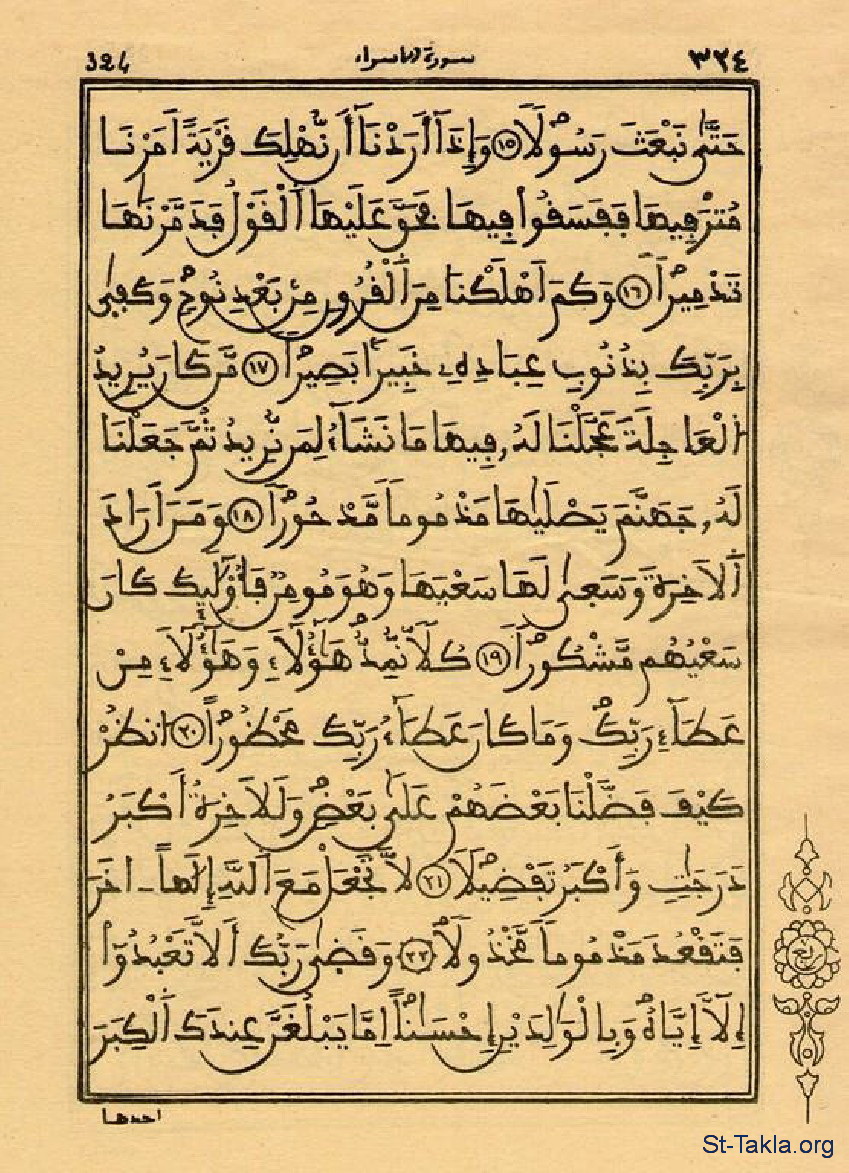 324 سورة الإسراء ٣٢٤
حَتَّىٰ نَبْعَثَ رَسُولًا ١٥ وَإِذَا أَرَدْنَا أَن نُّهْلِكَ قَرْيَةً اَمَرْنَا
مُتْرَفِيهَا فَفَسَقُوا فِيهَا فَحَقَّ عَلَيْهَا اَلْقَوْلُ فَدَمَّرْنَٰهَا
تَدْمِيرًا ١٦ وَكَمَ اَهْلَكْنَا مِنَ اَلْقُرُونِ مِنۢ بَعْدِ نُوحٍ وَكَفِىٰ
بِرَبِّكَ بِذُنُوبِ عِبَادِهِۦ خَبِيرًا بَصِيرًا ١٧ مَّن كَانَ يُرِيدُ
اُلْعَاجِلَةَ عَجَّلْنَا لَهُۥ فِيهَا مَا نَشَآءُ لِمَن نُّرِيدُ ثُمَّ جَعَلْنَا
لَهُۥ جَهَنَّمَ يَصْلَيٰهَا مَذْمُومًا مَّدْحُورًا ١٨ وَمَنَ اَرَادَ
اَلَاخِرَةَ وَسَعِىٰ لَهَا سَعْيَهَا وَهُوَ مُومِنٌ فَأُوْلَٰٓئِكَ كَانَ
سَعْيُهُم مَّشْكُورًا ١٩ كُلًّا نُّمِدُّ هَٰٓؤُلَآءِ وَهَٰٓؤُلَآءِ مِنْ
عَطَآءِ رَبِّكَ وَمَا كَانَ عَطَآءُ رَبِّكَ مَحْظُورًا ٢٠ اَنظُرْ
كَيْفَ فَضَّلْنَا بَعْضَهُمْ عَلَىٰ بَعْضٍ وَلَلَاخِرَةُ أَكْبَرُ
دَرَجَٰتٍ وَأَكْبَرُ تَفْضِيلًا ٢١ لَّا تَجْعَلْ مَعَ اَللَّهِ إِلَٰهًا اٰخَرَ
فَتَقْعُدَ مَذْمُومًا مَّخْذُولًا ٢٢ وَقَضِىٰ رَبُّكَ أَلَّا تَعْبُدُوٓا
إِلَّآ إِيَّاهُ وَبِالْوَٰلِدَيْنِ إِحْسَٰنًا اِمَّا يَبْلُغَنَّ عِندَكَ اَلْكِبَرَ
احدهما
St-Takla.org